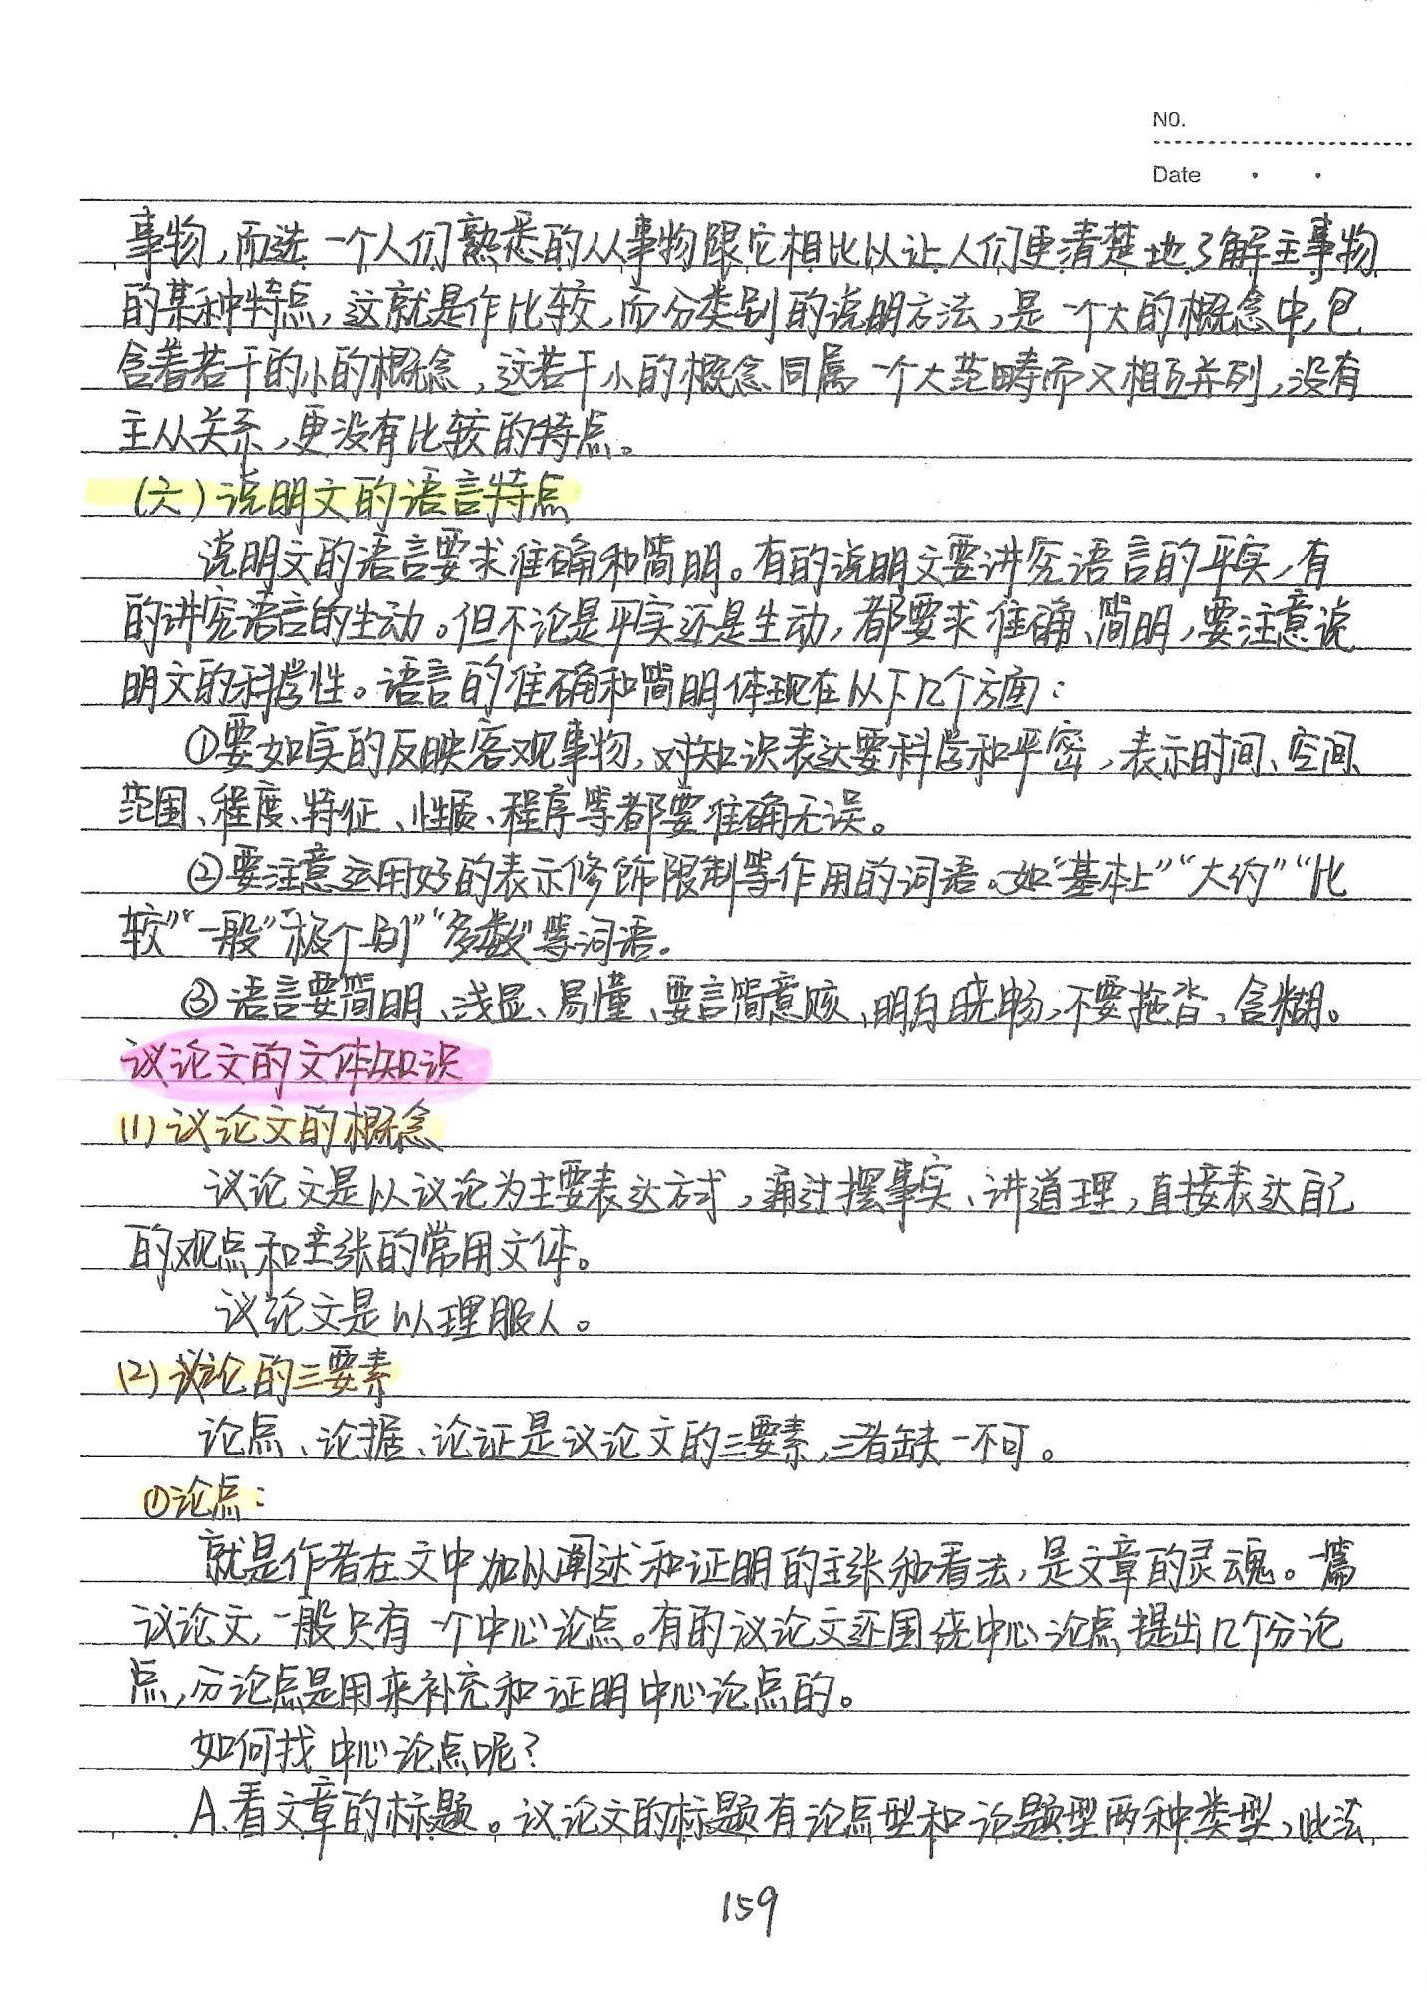 NO.
Date
事物，而选一个人们熟悉的从事物跟它相比以让人们更清楚地了解主事物
的某种特点，这就是作比较，而分类别的说明方法，是一个大的概念中，包
含着若干的小的概念，这若干小的概念同属一个大范畴而又相互并列，没有
主从关系，更没有比较的特点。
(六)说明文的语言特点
说明文的语言要求准确和简明。有的说明文要讲究语言的平实，有
的讲究语言的生动。但不论是平实还是生动，都要求准确、简明，要注意说
明文的科学性。语言的准确和简明体现在以下几个方面：
①要如实的反映客观事物，对知识表达要科学和平密，表示时间、空间、
范围、程度、特征、性质、程序等都要准确无误。
②要注意运用好的表示修饰限制等作用的词语。如“基本上”“大约”“比
较”“一般”“极个别”“多数”等词语。
③语言要简明、浅显、易懂、要言简意赅、明白晓畅，不要拖沓，含糊。
议论文的文体知识
(1)议论文的概念
议论文是以议论为主要表达方式，通过摆事实、讲道理，直接表达自己
的观点和主张的常用文体。
议论文是以理服人。
(2)议论的三要素
论点、论据、论证是议论文的三要素，三者缺一不可。
①论点：
就是作者在文中加以阐述和证明的主张和看法，是文章的灵魂。一篇
议论文，一般只有一个中心论点。有的议论文还围绕中心论点提出几个分论
点，分论点是用来补充和证明中心论点的。
如何找中心论点呢？
A.看文章的标题。议论文的标题有论点型和论题型两种类型，此法
159